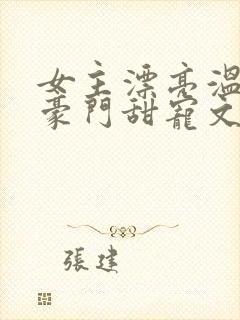 女主漂亮溫
豪門甜寵文
張建